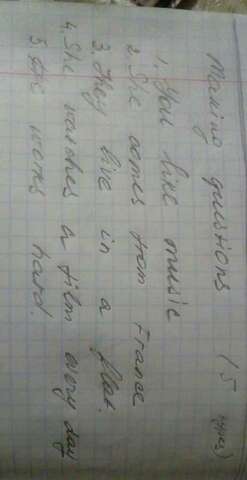 Making questions (5 types)
1. You like music
2. She comes from France
3. They live in a flat.
4. She watches a film every day
5. He works hard.